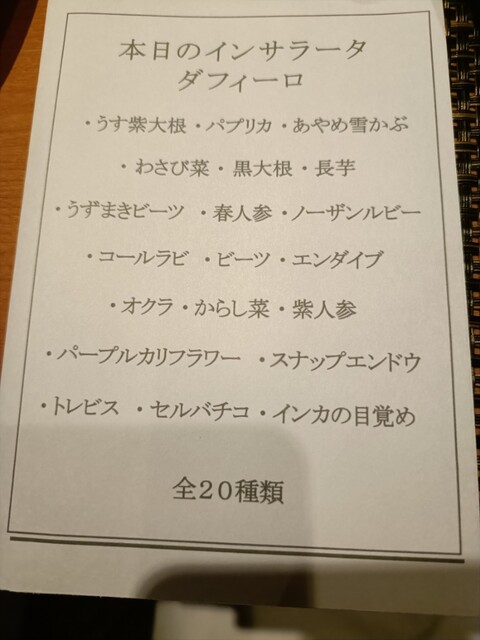 本日のインサラータ
ダフィーロ
・うす紫大根・パプリカ・あやめ雪かぶ
・わさび菜・黒大根・長芋
・うずまきビーツ ・春人参・ノーザンルビー
・コールラビ ・ビーツ・エンダイブ
・オクラ・からし菜・紫人参
・パープルカリフラワー ・スナップエンドウ
・トレビス ・セルバチコ・インカの目覚め
全20種類